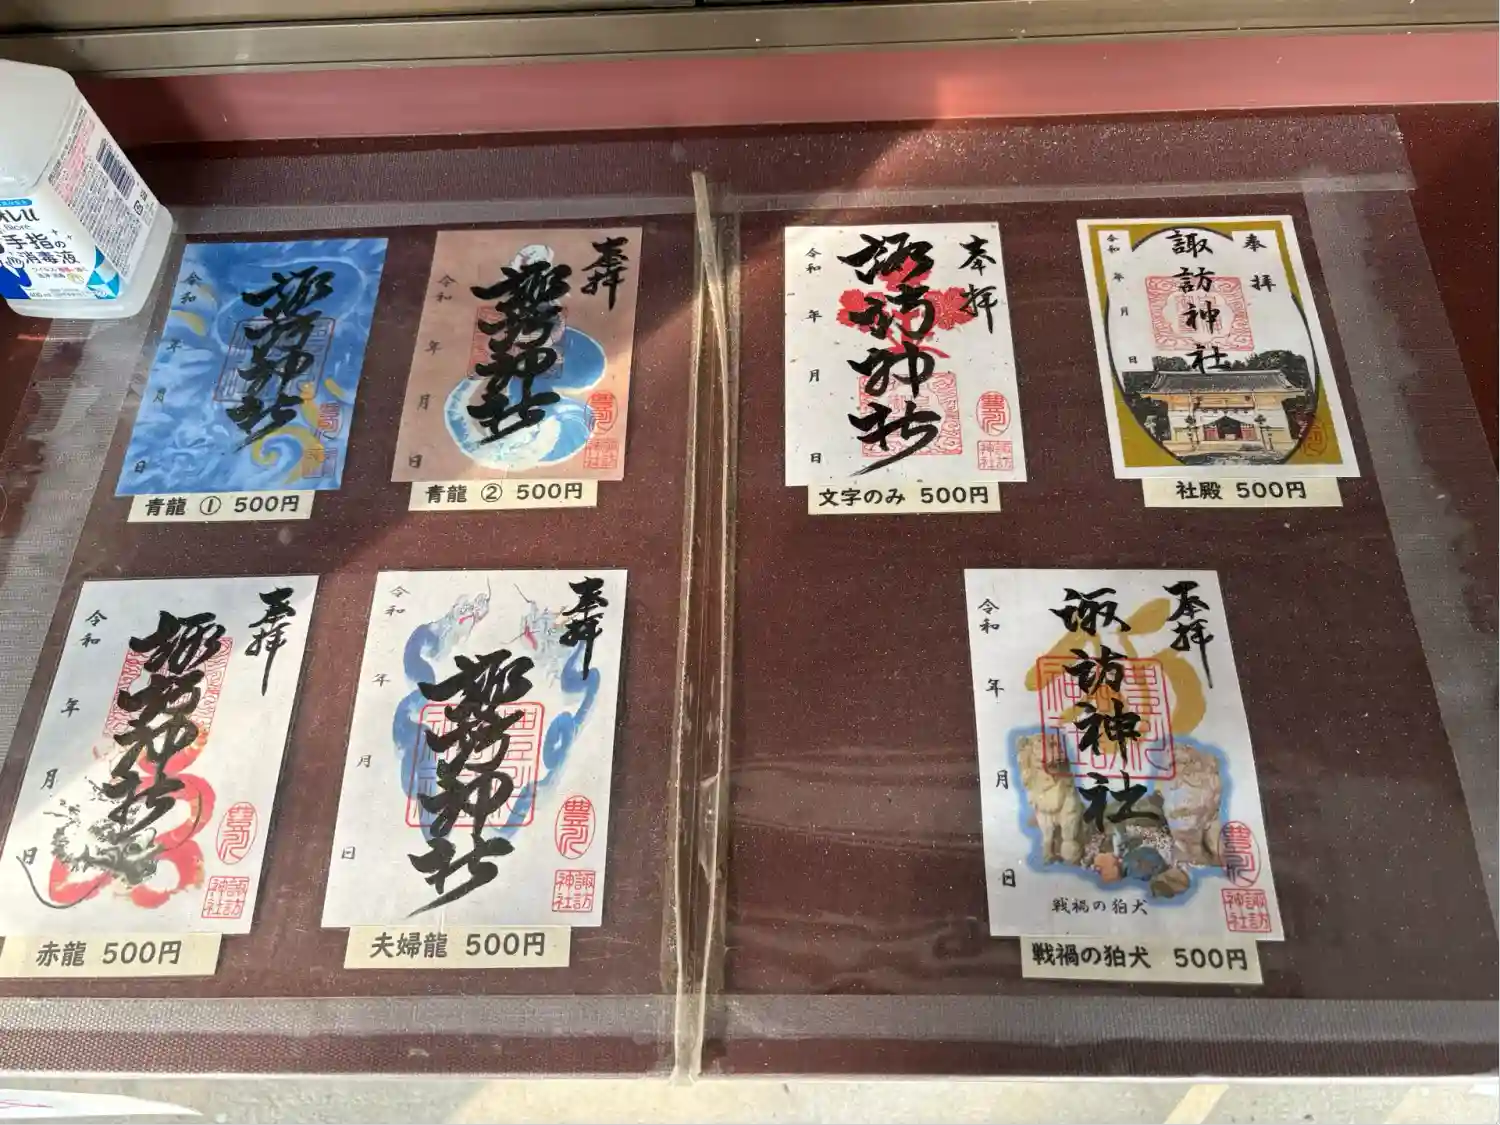 Biore
手指の
消毒液
令和 年 月 日
諏訪神社
青龍 ① 500円
奉拝
諏訪神社
令和 年 月 日
青龍 ② 500円
奉拝
諏訪神社
令和 年 月 日
諏訪神社
文字のみ 500円
奉拝
諏訪神社
令和 年 月 日
社殿 500円
奉拝
諏訪神社
令和 年 月 日
諏訪神社
赤龍 500円
奉拝
諏訪神社
令和 年 月 日
諏訪神社
夫婦龍 500円
奉拝
諏訪神社
令和 年 月 日
戦禍の狛犬
諏訪神社
戦禍の狛犬 500円